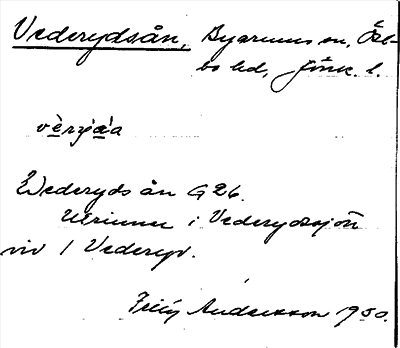 Vederydsån, Byarums sn, Öst-
bo hd, Jönk. l.
vèrjáa
Wederydsån G26.
Utrinner i Vederydssjön
vid 1 Vederyd.
Andersson 1950.